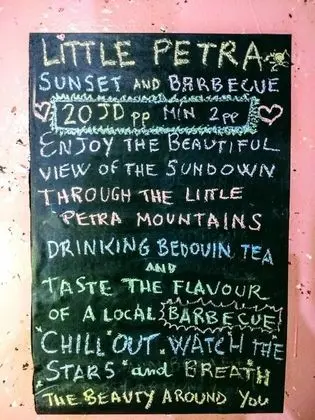 LITTLE PETRA
SUNSET AND BARBECUE
20 JD pp MIN 2pp
ENJOY THE BEAUTIFUL
VIEW OF THE SUNDOWN
THROUGH THE LITTLE
PETRA MOUNTAINS
DRINKING BEDOUIN TEA
AND
TASTE THE FLAVOUR
OF A LOCAL BARBECUE
"CHILL OUT", WATCH THE
STARS and BREATH
THE BEAUTY AROUND YOU